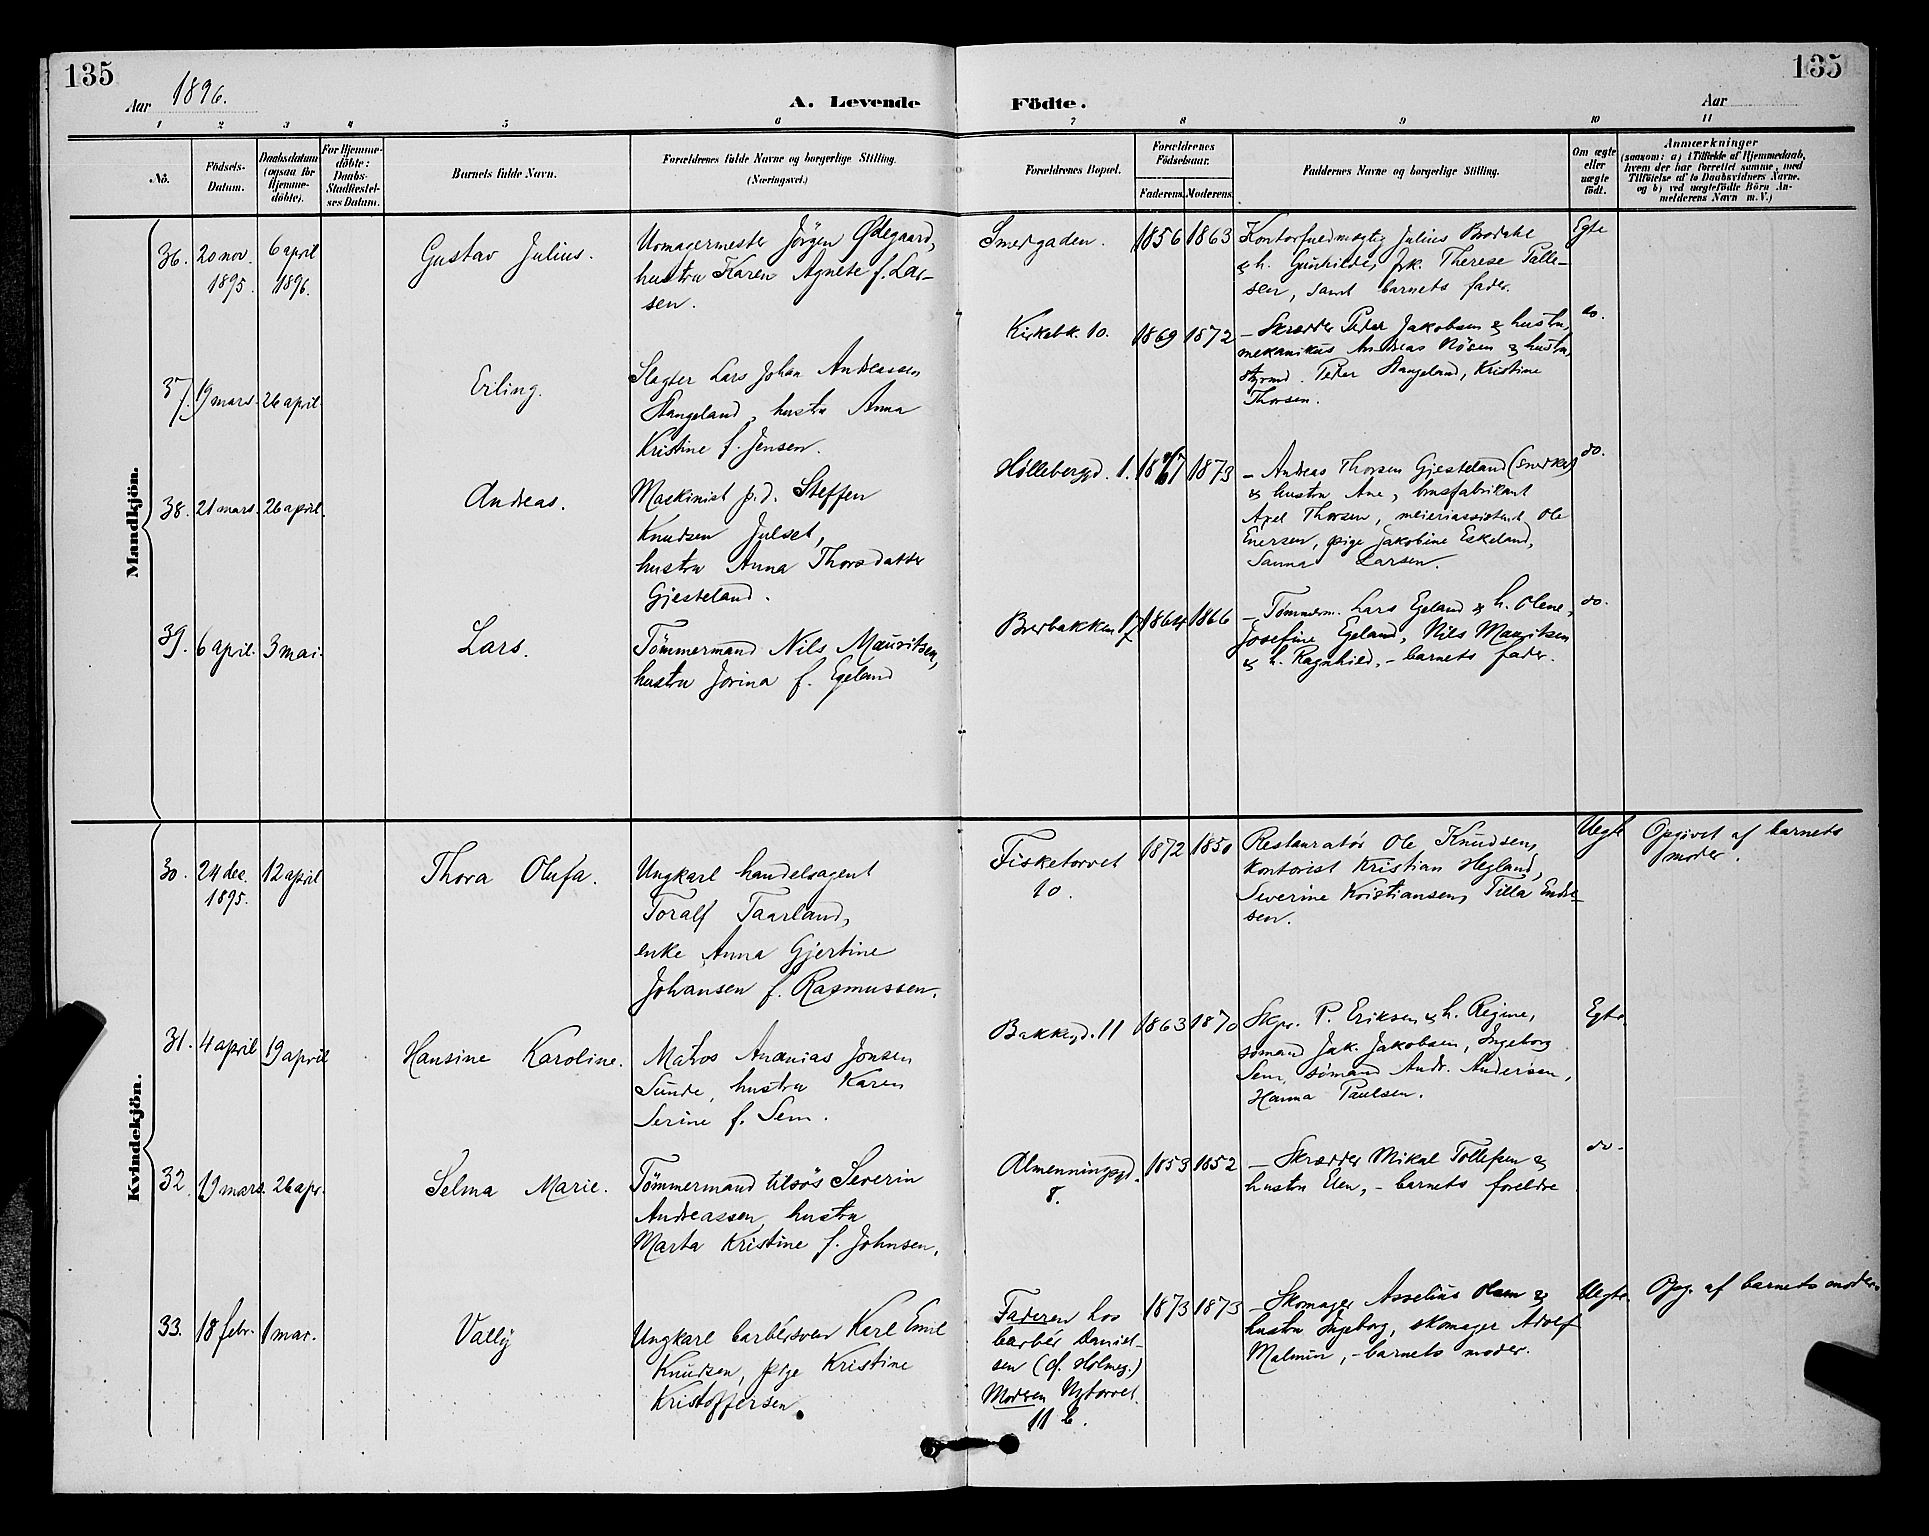 135
135
Aar 1896.
A. Levende
Födte.
Aar
1 2 3 4 5 6 7 8 9 10 11
Nö.
Födsels-Datum.
Daabsdatum (ogsaa for Hjemme-döbte).
For Hjemme-döbte: Daabs-Stadfæstel-ses Datum.
Barnets fulde Navn.
Forældrenes fulde Navne og borgerlige Stilling.
(Næringsvei.)
Forældrenes Bopæl.
Forældrenes Födselsaar.
Faderens. Moderens.
Faddernes Navne og borgerlige Stilling.
Om ægte eller uægte födt.
Anmærkninger
(saasom: a) i Tilfælde af Hjemmedaab,
hvem der har forrettet samme, med
Tilföielse af to Daabsvidners Navne.
og b) ved uægtefödte Börn An-
melderens Navn m. V.)
Mandkjön.
36. 20 nov. 1895. 6 april 1896.
Gustav Julius.
Uomagermester Jörgen Ødegaard,
hustru Karen Agnete f. Lar-
sen.
Smedgaden.
1856 1863
Kontorfuldmægtig Julius Brodahl
& h. Gunhilde, frk. Therese Palle-
sen, samt barnets fader.
Egte
37. 19 mars. 26 april.
Erling.
Slagter Lars Johan Andreassen
Stangeland, hustru Anna
Kristine f. Jensen.
Kirkebk. 10.
1869 1872
- Skrædder Peder Jakobsen & hustru,
mekanikus Andreas Nösen & hustru,
styrmd. Peder Stangeland, Kristine
Thorsen.
do.
38. 21 mars. 26 april.
Andreas.
Maskinist p.d. Steffen
Knudsen Julset,
hustru Anna Thorsdatter
Gjesteland.
Hillebergd. 1.
1867 1873
- Andreas Thorsen Gjesteland (snedker)
& hustru Ane, brusfabrikant
Axel Thorsen, meieriassistent Ole
Enersen, pige Jakobine Eskeland,
Sanna Larsen.
do.
39. 6 april. 3 mai.
Lars.
Tömmermand Nils Mauritsen,
hustru Jorina f. Egeland
Bverbakken 17
1864 1866
- Tömmerm. Lars Egeland & h. Olene,
Josefine Egeland, Nils Mauritsen
& h. Ragnhild, - barnets fader.
do.
Kvindekjön.
30. 24 dec. 1895. 12 april
Thora Olufa.
Ungkarl handelsagent
Toralf Taarland,
enke Anna Gjertine
Johansen f. Rasmussen.
Fisketorvet
10.
1872 1850
Restauratör Ole Knudsen,
kontorist Kristian Hegland,
Severine Kristiansen, Tilla Endre-
sen.
Uegte
Opgivet af barnets
moder.
31. 4 april 19 april
Hansine Karoline.
Matros Ananias Jonsen
Sunde, hustru Karen
Serine f. Sem.
Bakkegd. 11
1863 1870
Skpr. P. Eriksen & h. Regine,
sømand Jak. Jakobsen, Ingeborg
Sem, sømand Andr. Andersen,
Hanna Paulsen.
Egte.
32. 19 mars. 26 apr.
Selma Marie.
Tömmermand tilsös Severin
Andreassen, hustru
Marta Kristine f. Johnsen.
Almenningsgd.
8.
1853 1852
- Skrædder Mikal Tollefsen &
hustru Elen, - barnets foreldre
do.
33. 18 febr. 1 mar.
Vally
Ungkarl barbersvend Karl Emil
Knudsen, pige Kristine
Kristoffersen.
Faderen hos
barbér Daniel-
sen (d. Holmeg.)
Moderen Nytorvet
11 b.
1873 1873
- Skomager Asselius Olsen &
hustru Ingeborg, skomager Adolf
Malmin, - barnets moder.
Uegte.
Opg. af barnets moder.